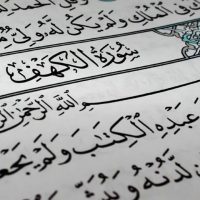 وَقُلِ ٱلْحَمْدُ
ٱلْمُلْكِ وَلَمْ يَكُن لَّهُۥ وَلِىٌّ
سُورَةُ الكَهْفِ
بِسْمِ ٱللَّهِ ٱلرَّحْمَٰنِ
عَبْدِهِ ٱلْكِتَٰبَ وَلَمْ يَجْعَل
لَّدُنْهُ وَيُبَشِّرَ